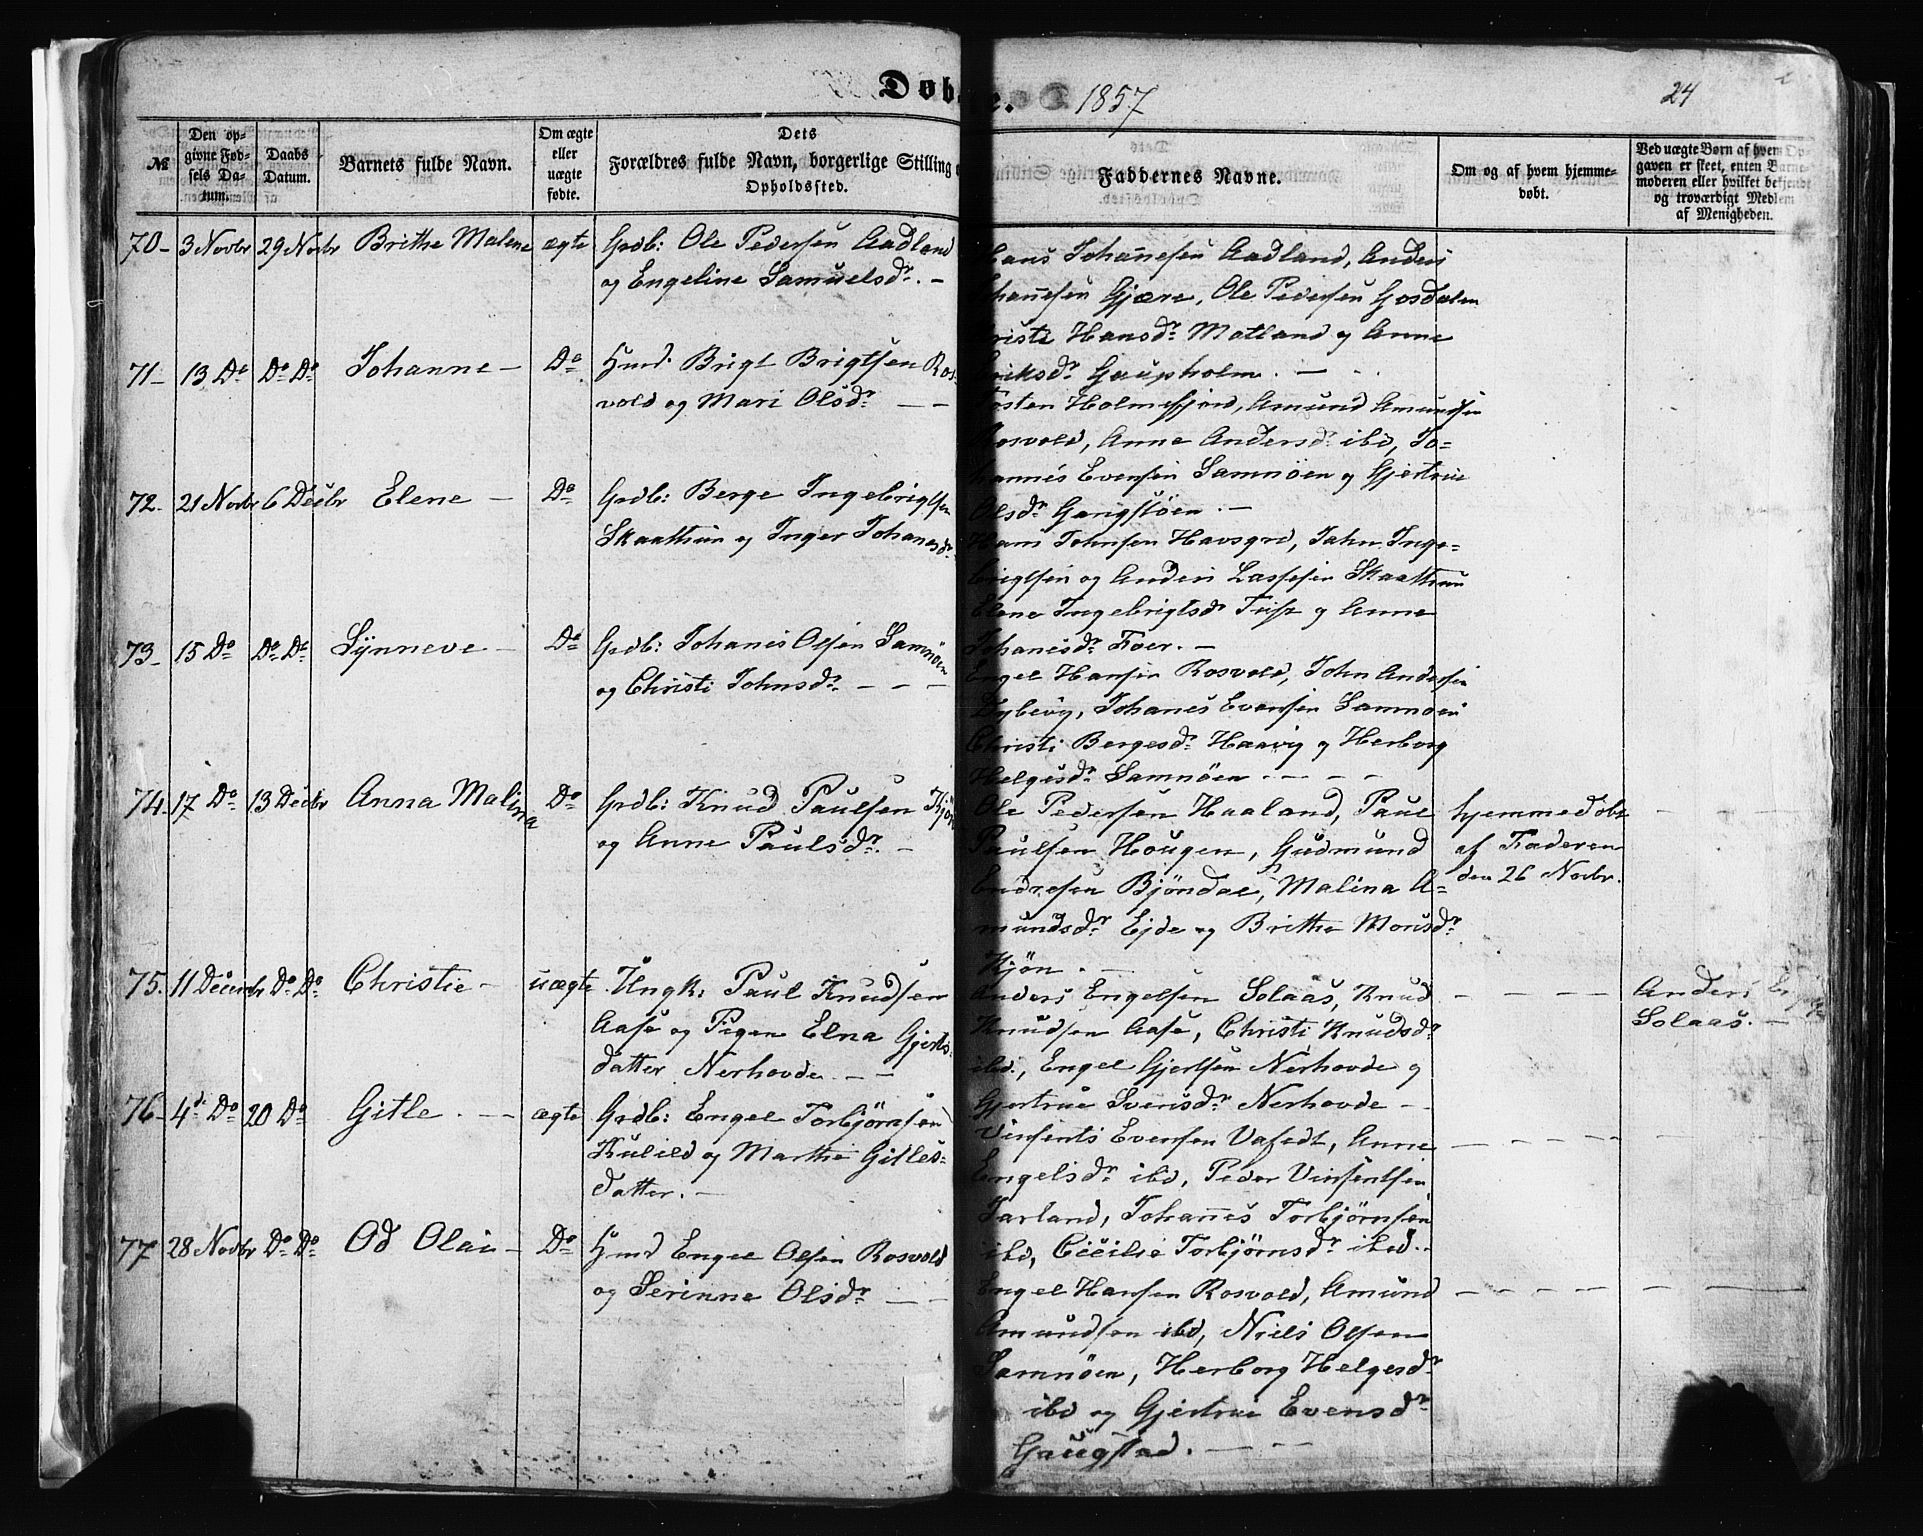 Døb
e. 1857
24
№
Den op-
givne Fød-
sels Da-
tum.
Daabs
Datum.
Barnets fulde Navn.
Om ægte
eller
uægte
fødte.
Dets
Forældres fulde Navn, borgerlige Stilling o
Opholdssted.
Faddernes Navne.
Om og af hvem hjemme-
døbt.
Ved uægte Børn af hvem Op-
gaven er skeet, enten Barne-
moderen eller hvilket bekjendt
og troværdigt Medlem
af Menigheden.
70- 3 Novbr 29 Novbr Brithe Malene ægte Grdb: Ole Pedersen Aadland
og Engeline Samuelsdr. -
Hans Johannesen Aadland, Anders
hannesen Gjære, Ole Pedersen Gosdalen
risti Hansdr. Matland og Anne
Eriksdr. Gaupholm. -
71- 13 Do Do Do Johanne - Do Hmd. Brigt Brigtsen Ros-
vold og Mari Olsdr. - -
Tosten Holmefjord, Amund Amundsen
Rosvold, Anne Andersdr. ibd, Jo-
hannes Evensen Samnøen og Gjertrue
Olsdr. Gangstøen. -
72. 21 Novbr 6 Decbr Elene - Do Grdb: Berge Ingebrigtsen
Skaathun og Inger Johanesdr.
Hans Johnsen Havsgrd, John Inge-
brigtsen og Anders Lassesen Skaathun
Elene Ingebrigtsdr og Anne
Johanesdr. -
73- 15 Do Do Do Synneve - Do Grdb: Johanes Olsen Samnøen
og Christi Johnsdr. - - -
Engel Hansen Rosvold, John Andersen
Dybevig, Johanes Evensen Samnøen
Christi Bergesdr. Haavig og Herborg
Helgesdr. Samnøen. - - -
74. 17 Do 13 Decbr Anna Malina Do Grdb: Knud Paulsen Kjøn
og Anne Paulsdr. -
Ole Pedersen Haaland, Paul
Paulsen Hougen, Gudmund
Endresen Bjøndal, Malina A-
mundsdr. Ejde og Brithe Monsdr.
Kjøn. -
hjemmedøbt
af Faderen
den 26 Novbr.
75. 11 Decembr Do Do Christie - uægte Ungk: Paul Knudsen
Aase og Pigen Elna Gjerts-
datter Nerhovde. - -
Anders Engelsen Solaas, Knud
Knudsen Aase, Christi Knudsdr.
ibd., Engel Gjertsen Nerhovde og
Gjertrue Svensdr. Nerhovde - -
Anders
Solaas. -
76- 4de Do 20 Do Gitle. - ægte Grdb: Engel Torbjørnsen
Kulild og Marthe Gitles-
datter. -
Vinsents Evensen Vafedt, Anne
Engelsdr ibd, Peder Vinsentsen
Jarland, Johannes Torbjørnsen
ibd, Cicilie Torbjørnsdr. ibd. -
77 28 Novbr Do Do Od Olai - Do Hmd Engel Olsen Rosvold
og Serinne Olsdr. - -
Engel Hansen Rosvold, Amund
Amundsen ibd, Niels Olsen
Samnøen, Herborg Helgesdr.
ibd og Gjertrue Evensdr.
Gaugstad. - - -